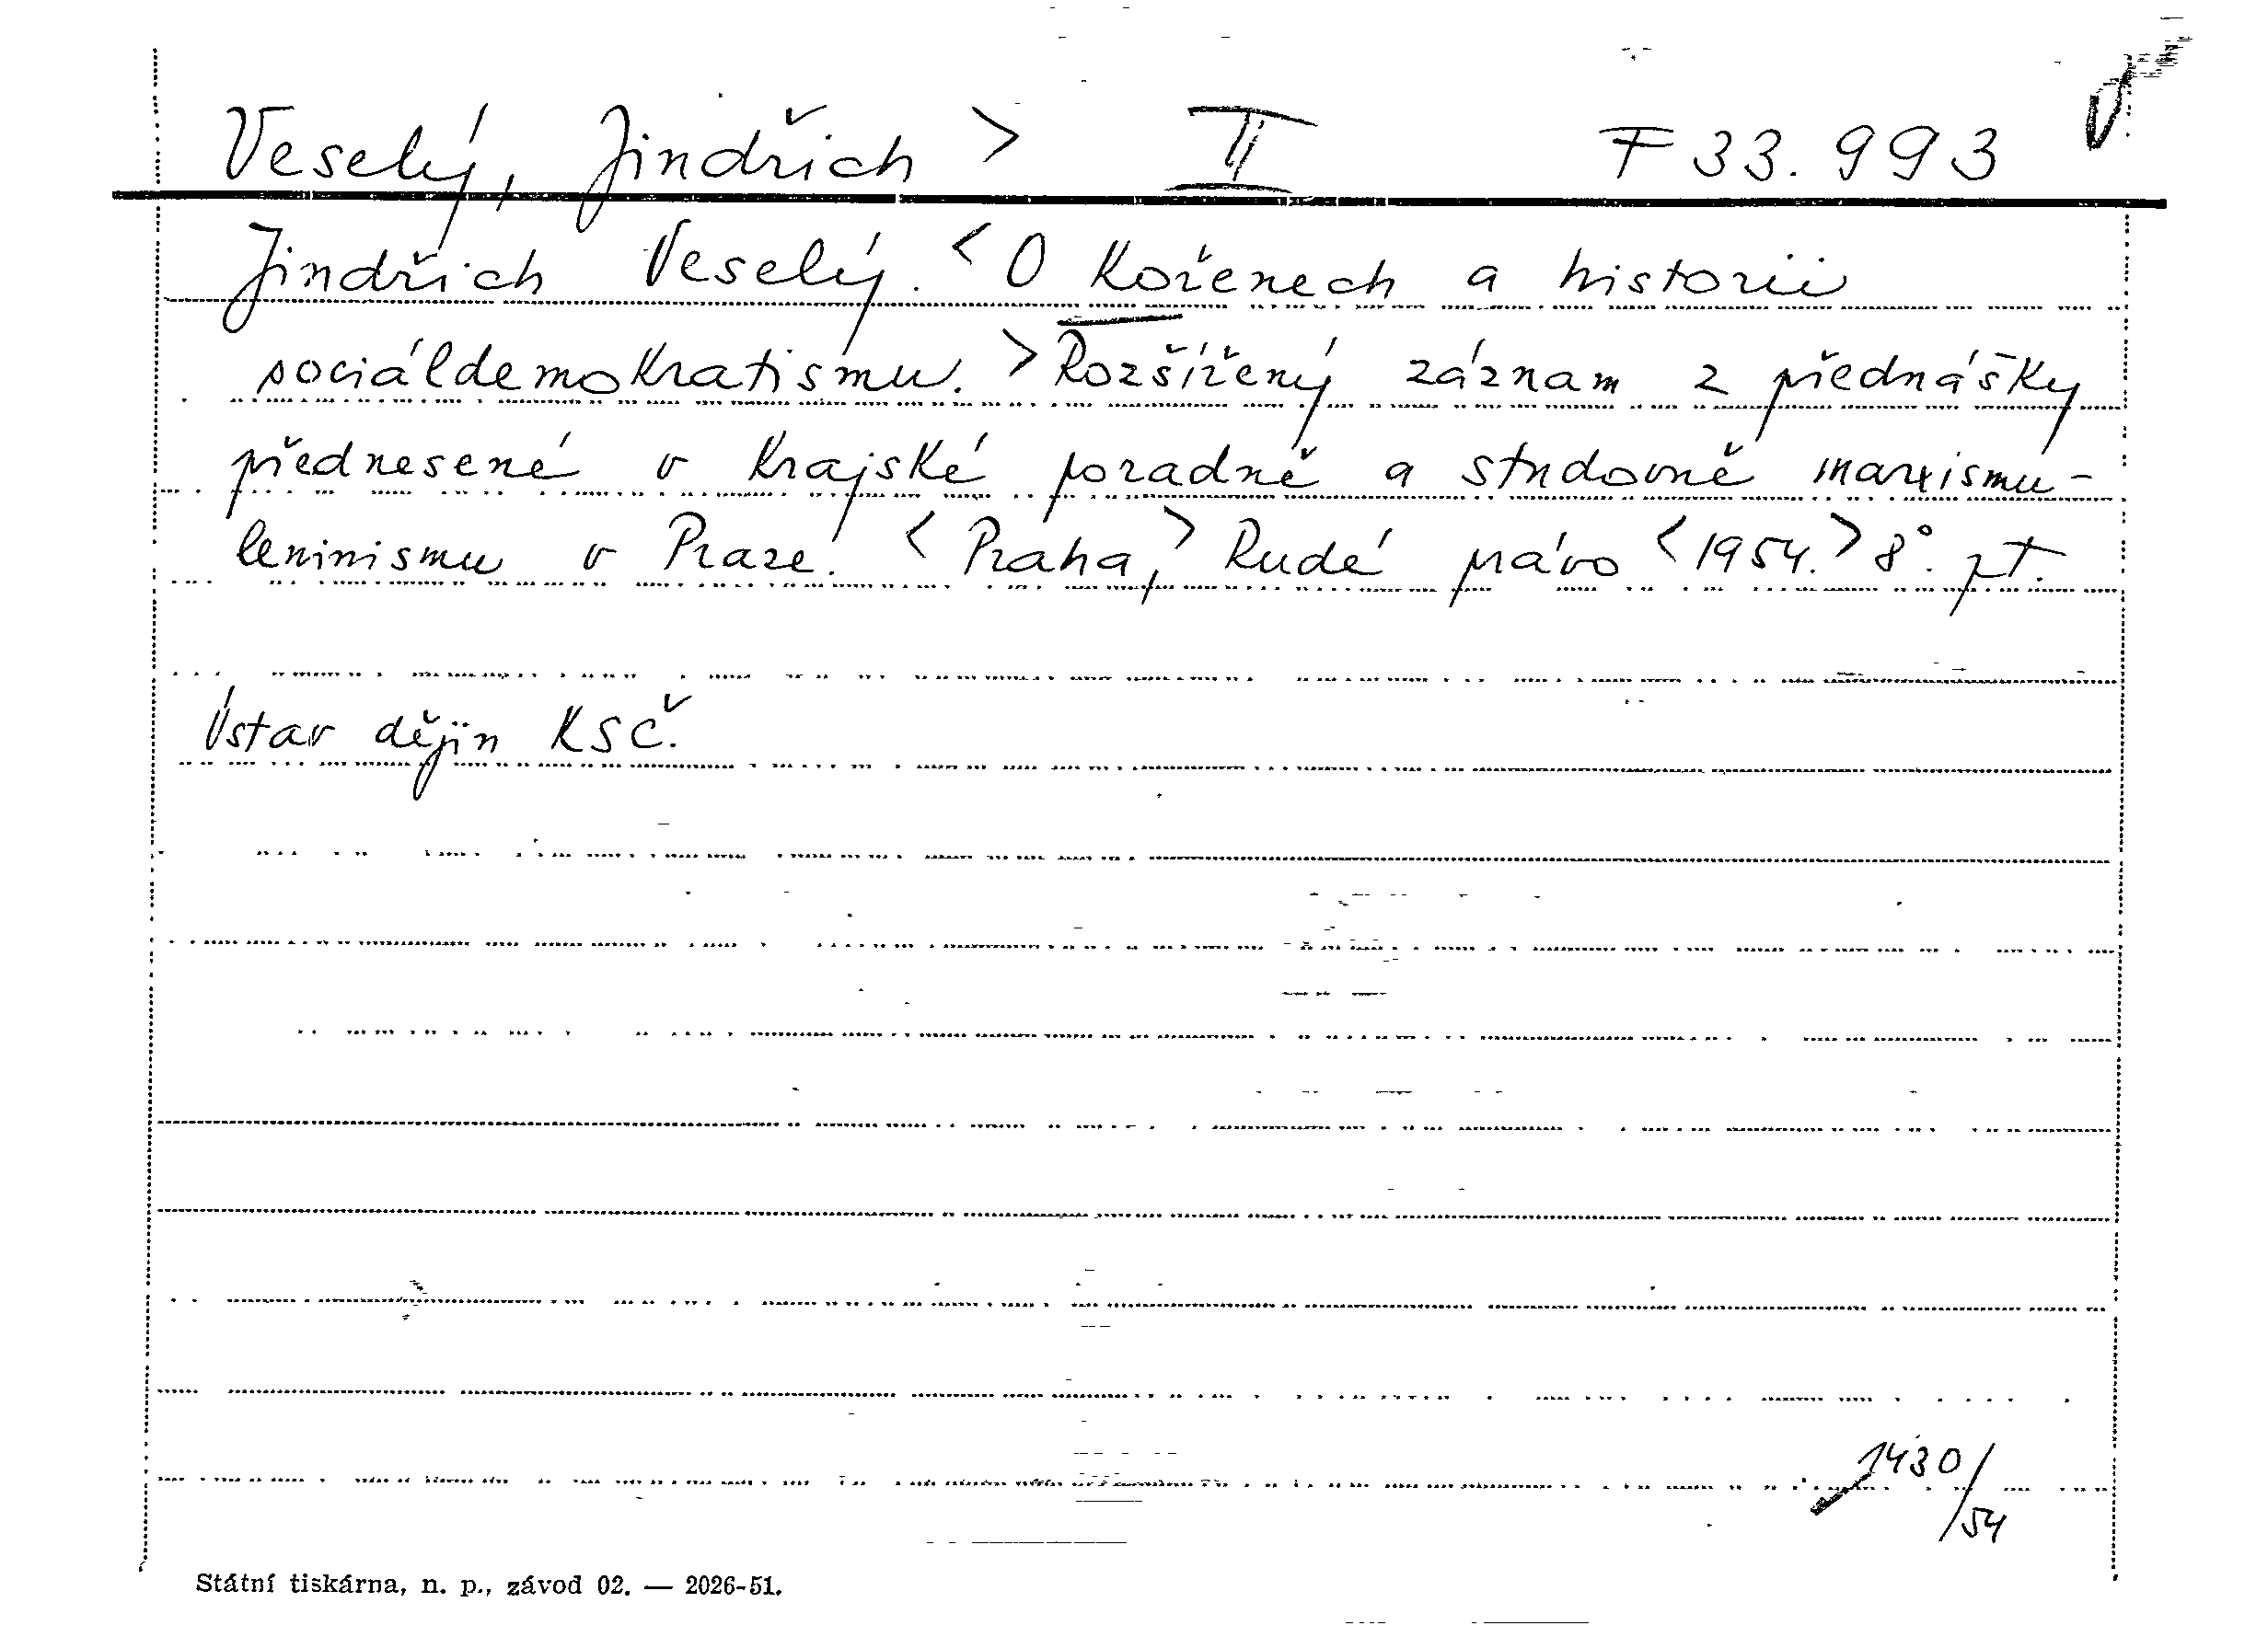 Veselý, Jindřich > II F 33.993
Jindřich Veselý. < O kořenech a historii
sociáldemokratismu. > Rozšířený záznam z přednášky
přednesené v Krajské poradně a studovně marxismu-
leninismu v Praze. < Praha, > Rudé právo < 1954. > 8°. pt.
Ústav dějin KSČ.
1430/54
Státní tiskárna, n. p., závod 02. — 2026-51.